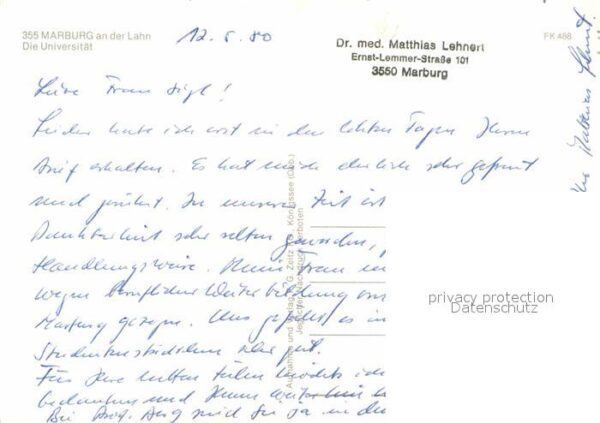 355 MARBURG an der Lahn
Die Universität
12. 5. 80
Dr. med. Matthias Lehnert
Ernst-Lemmer-Straße 101
3550 Marburg
FK 488
Liebe Frau
Leider habe ich erst in den letzten Tagen Ihren
Brief erhalten. Es hat mich ehrlich sehr gefreut
und gerührt. In unserer Zeit ist
Dankbarkeit sehr selten geworden,
Handlungsweise. Meine Frau
wegen beruflicher Weiterbildung
Marburg gezogen. Uns gefällt es in
sehr gut.
Für Ihre netten Zeilen möchte ich
bedanken und Ihnen weiterhin
Bei Prof. sind Sie ja in
Ihr Matthias Lehnert
Aufnahme und Verlag: G. Zeitz KG., Königssee (Obb.)
Jeglicher Nachdruck verboten
privacy protection
Datenschutz